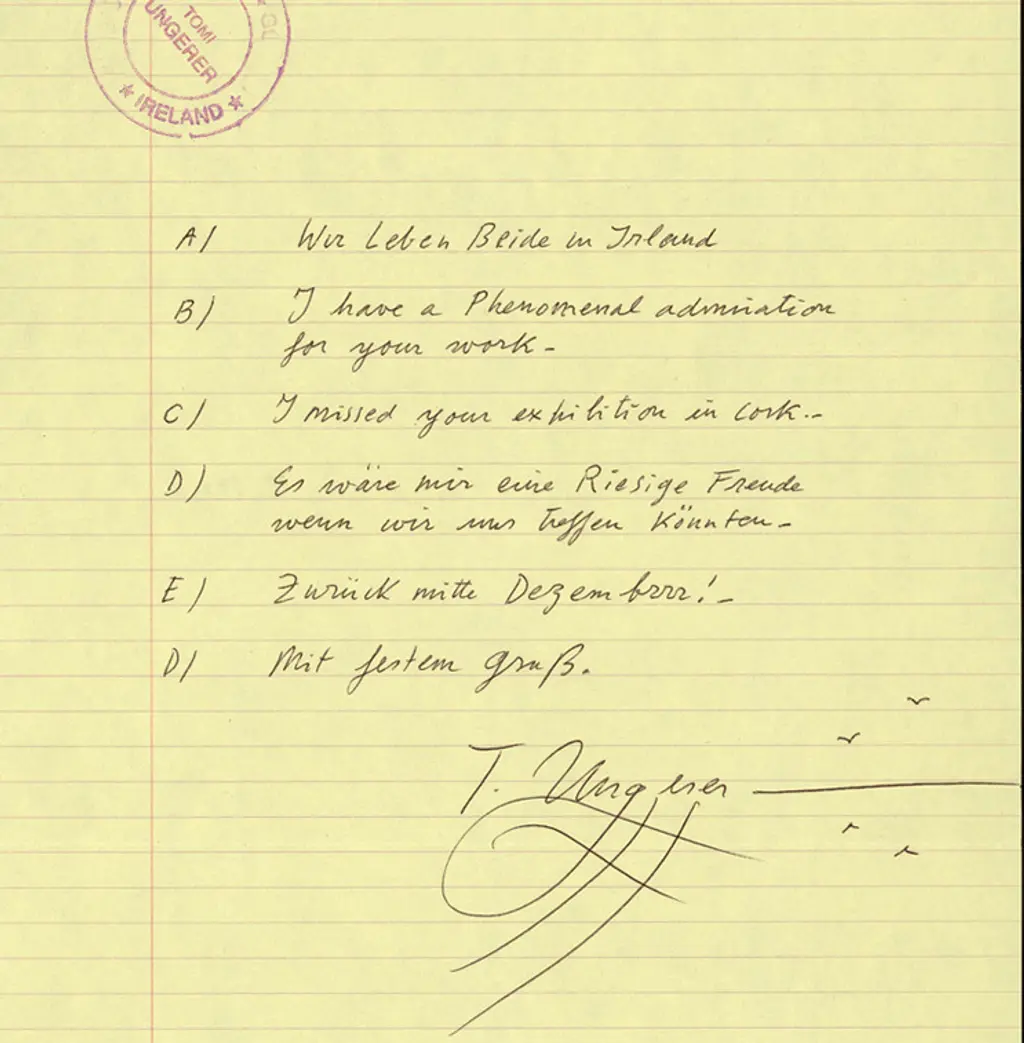 TOMI
UNGERER
★ IRELAND ★
A) Wir Leben Beide in Irland
B) I have a Phenomenal admiration
for your work –
C) I missed your exhibition in Cork. –
D) Es wäre mir eine Riesige Freude
wenn wir uns treffen Könnten –
E) Zurück mitte Dezembrrr! –
D) Mit festem Gruß.
T. Ungerer